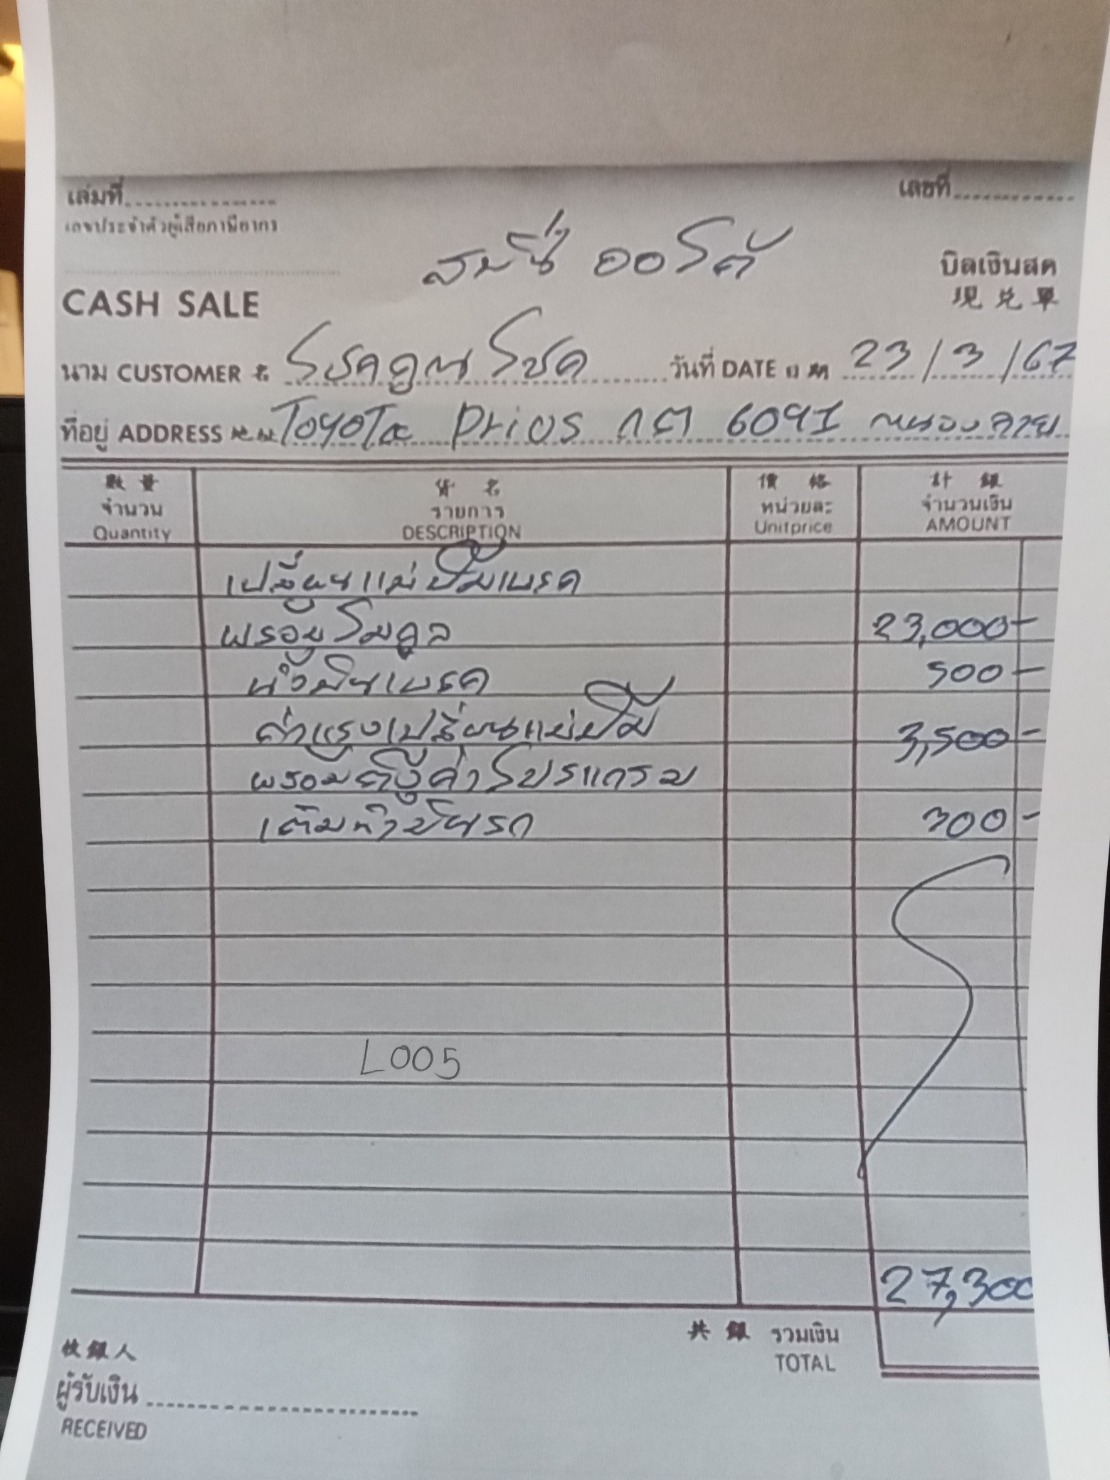 เล่มที่
เลขที่
เลขประจำตัวผู้เสียภาษีอากร
สมนึก ออโต้
บิลเงินสด
現兌單
CASH SALE
นาม CUSTOMER 名 โชคคูณโชค วันที่ DATE 日期 23/3/67
ที่อยู่ ADDRESS 地址 Toyota Prios กต 6091 หนองลาย
數量 จำนวน Quantity
貨名 รายการ DESCRIPTION
價格 หน่วยละ Unitprice
計銀 จำนวนเงิน AMOUNT
เปลี่ยนแม่ปั๊มเบรค
พร้อมโมดูล 23,000-
น้ำมันเบรค 500-
ค่าแรงเปลี่ยนแม่ปั๊ม 3,500-
พร้อมตั้งค่าโปรแกรม
เติมน้ำมันรถ 300-
L005
27,300
共銀 รวมเงิน
TOTAL
收銀人
ผู้รับเงิน
RECEIVED